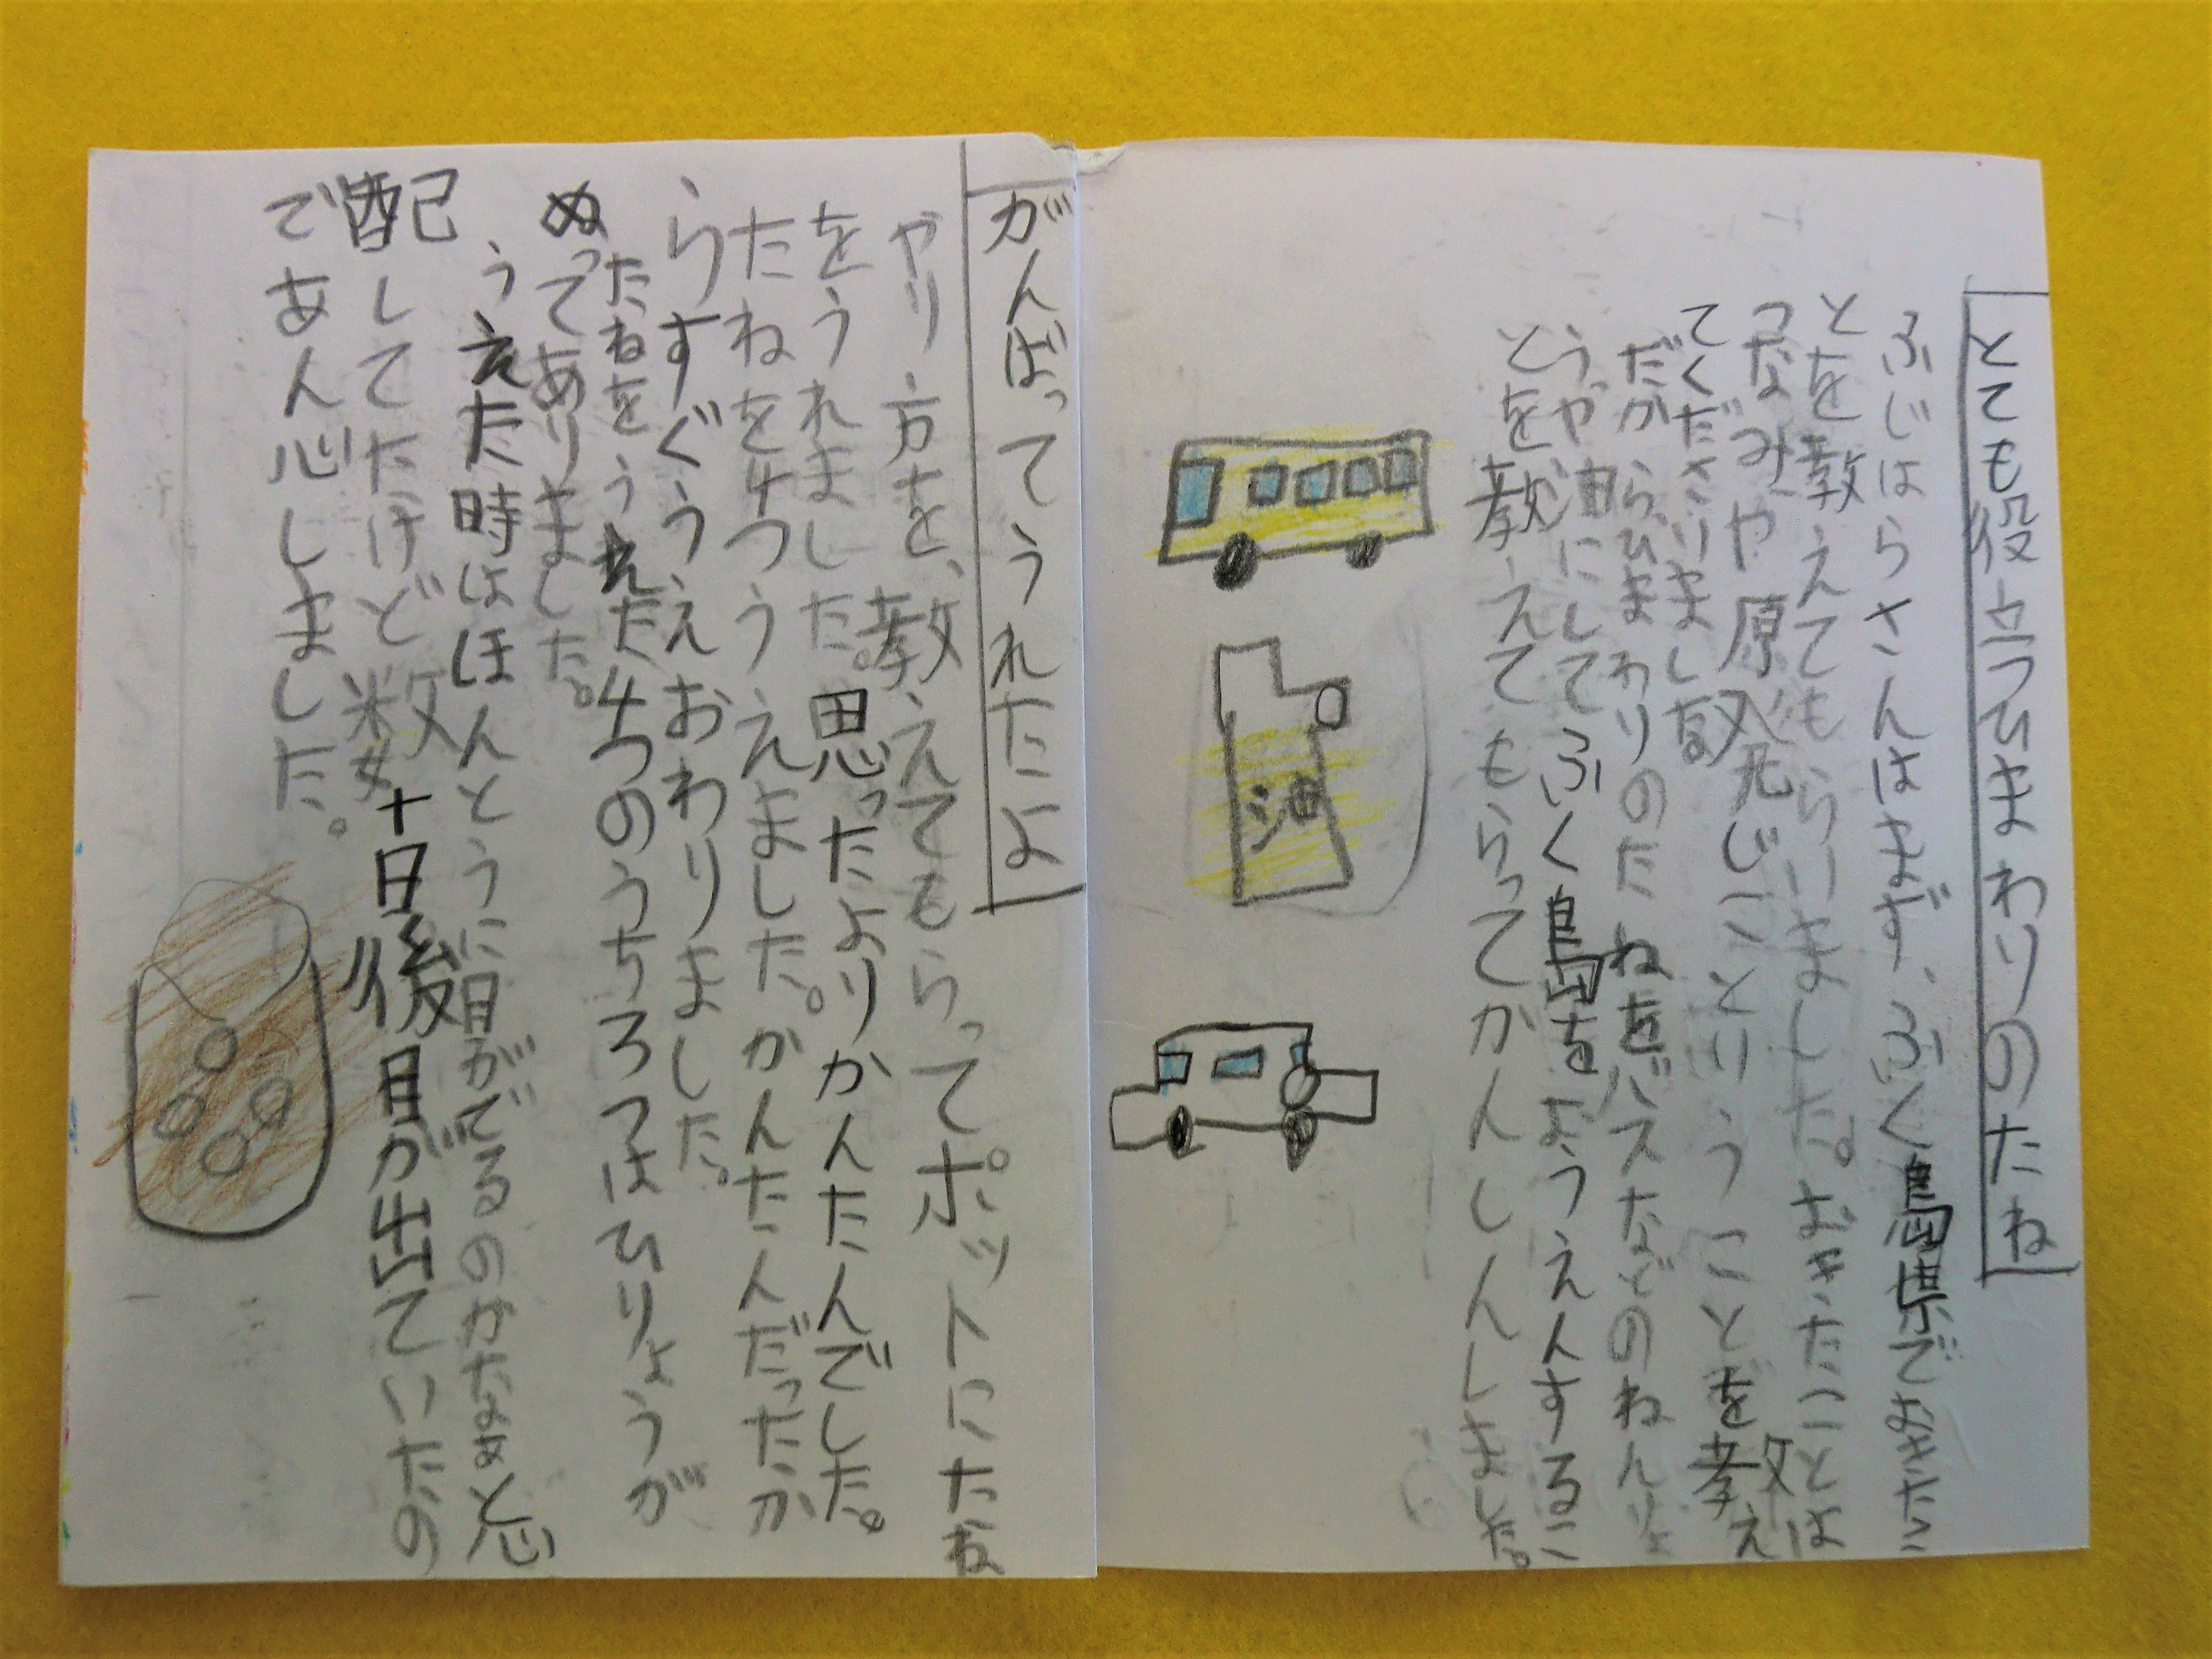 とても役立つひまわりのたね
ふじはらさんはまず、ふく島県でおきたこ
とを教えてもらいました。おきたことは
つなみや原発じことりうことを教え
てくださりました
だからひまわりのたねをバスなどのねんりょ
うや油にしてふく島をおうえんするこ
とを教えてもらってかんしんしました。
油
がんばってうれたよ
やり方を、教えてもらってポットにたね
をうれました。思ったよりかんたんでした。
たねを4つうえました。かんたんだったか
らすぐうえおわりました。
たねをうれた4つのうち3つはひりょうが
ぬってありました。
うえた時はほんとうに目がでるのかなぁと心
配してたけど数十日後目が出ていたの
であん心しました。